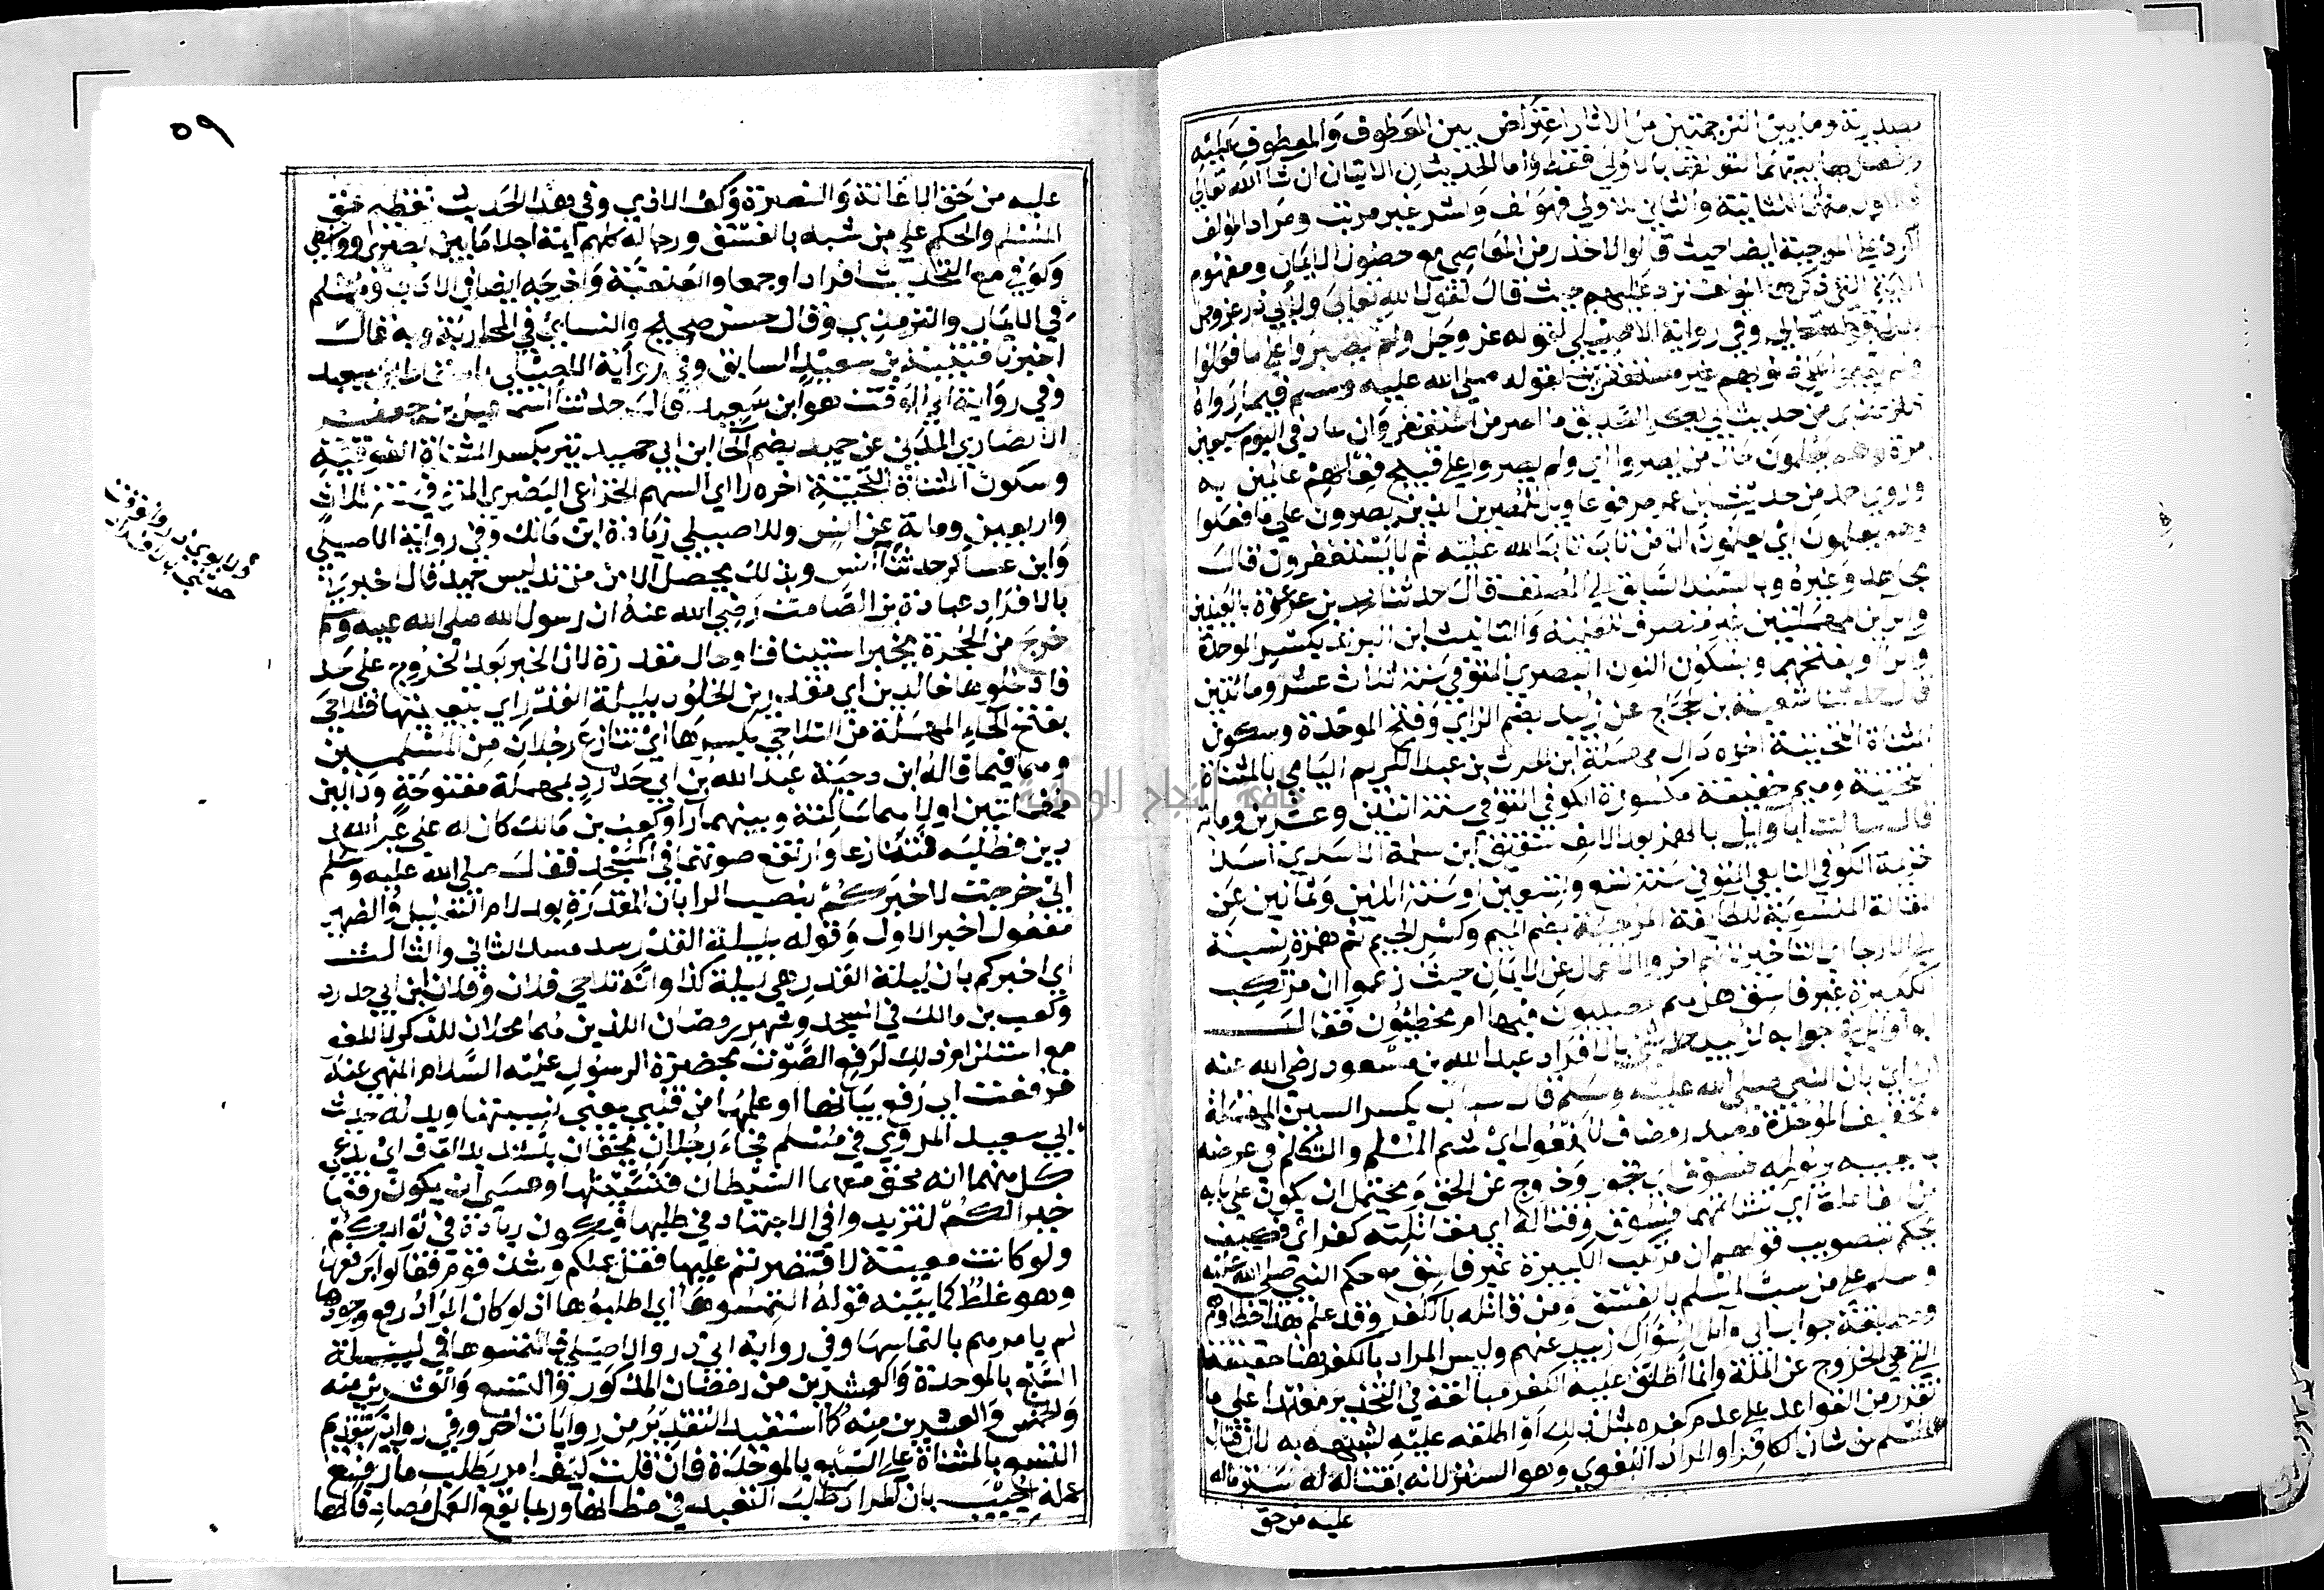 مصدرية وما بين الترجمتين من الاثار اعتراض بين المعطوف والمعطوف عليه
وفصل بها بينهما لتعلقها بالاولى فقط واما الحديثان الاتيان ان شا الله تعالى
فالاول منهما للثانية والثاني للاولى فهو لف ونشر غير مرتب ومراد المولف
الرد على المرجئة ايضا حيث قالوا لا حذر من المعاصي مع حصول الايمان ومفهوم
الاية التي ذكرها المولف ترد عليهم حيث قال لقول الله تعالى ولابي ذر عز وجل
بدل قوله تعالى وفي رواية الاصيلي لقوله عز وجل ولم يصروا على ما فعلوا
ذنوبهم غير مستغفرين لقوله صلى الله عليه وسلم فيما رواه
الترمذي من حديث ابي بكر الصديق ما اصر من استغفر وان عاد في اليوم سبعين
مرة وهم يعلمون حال من يصروا اي ولم يصروا على قبيح فعالهم عالمين به
وروى احمد من حديث ابن عمر مرفوعا ويل للمصرين الذين يصرون على ما فعلوا
وهم يعلمون اي يعلمون ان من تاب تاب الله عليه ثم لا يستغفرون قال
مجاهد وغيره وبالسند السابق الى المصنف قال حدثنا محمد بن عرعرة بالعينين
والراين المهملتين غير منصرف للعلمية والتانيث ابن البرند بكسر الموحدة
والراء وبفتحهما وبسكون النون البصري المتوفى سنة ثلاث عشر ومائتين
قال حدثنا شعبة بن حجاج عن زبيد بضم الزاي وفتح الموحدة وسكون
المثناة التحتية اخره دال مهملة ابن الحرث بن عبد الكريم اليامي بالمثناة
تحتية وميم خفيفة مكسورة الكوفي المتوفى سنة اثنين وعشرين ومائة
قال سالت ابا وايل بالهمز بعد الالف شقيق ابن سلمة الاسدي اسد
خزيمة الكوفي التابعي المتوفى سنة تسع وتسعين او سنة اثنين وثمانين عن
المقالة المنسوبة للطايفة المرجئة بضم الميم وكسر الجيم ثم همزة نسبة
الى الارجا اي التاخير لانهم اخروا الاعمال عن الايمان حيث زعموا ان مرتكب
الكبيرة غير فاسق هل هم مصيبون فيها ام مخطئون فقال
ابو وايل في جوابه لزبيد حدثني بالافراد عبد الله بن مسعود رضي الله عنه
ان اي بان النبي صلى الله عليه وسلم قال سباب بكسر السين المهملة
وتخفيف الموحدة مصدر مضاف للمفعول اي شتم المسلم والتكلم في عرضه
بما يعيبه ويولمه فسوق اي فجور وخروج عن الحق ويحتمل ان يكون على بابه
من المفاعلة اي تشاتمهما فسوق وقتاله اي مقاتلته كفر اي فكيف
يحكم بتصويب قولهم ان مرتكب الكبيرة غير فاسق مع حكم النبي صلى الله عليه
وسلم على من سب المسلم بالفسق ومن قاتله بالكفر وقد علم بهذا خطاوهم
ومطابقة جواب ابي وايل لسؤال زبيد عنهم وليس المراد بالكفر هنا حقيقته
التي هي الخروج عن الملة وانما اطلق عليه الكفر مبالغة في التحذير معتمدا على ما
تقرر من القواعد على عدم كفره بمثل ذلك او اطلقه عليه لشبهه به لان قتال
المسلم من شان الكافر او المراد الكفر اللغوي وهو الستر لانه بقتاله له ستر ماله
عليه من حق
٥٩
عليه من حق الاعانة والنصرة وكف الاذى وفي هذا الحديث تعظيم حق
المسلم والحكم على من سبه بالفسق ورجاله كلهم ايمة اجلا ما بين بصري وواسطي
وكوفي مع التحديث افرادا وجمعا والعنعنة واخرجه ايضا في الادب ومسلم
في الايمان والترمذي وقال حسن صحيح والنسائي في المحاربة وبه قال
اخبرنا قتيبة بن سعيد السابق وفي رواية الاصيلي باسقاط ابن سعيد
وفي رواية ابي الوقت هو ابن سعيد قال حدثنا اسمعيل بن جعفر
الانصاري المدني عن حميد بضم الحا ابن ابي حميد تير بكسر المثناة الفوقية
وسكون المثناة التحتية اخره را اي السهم الخزاعي البصري المتوفى سنة ثلاث
واربعين وماية عن انس وللاصيلي زيادة ابن مالك وفي رواية الاصيلي
وابن عساكر حدثنا انس وبذلك يحصل الامن من تدليس حميد قال اخبرني
بالافراد عبادة بن الصامت رضي الله عنه ان رسول الله صلى الله عليه وسلم
خرج من الحجرة يخبر استينافا او حال مقدرة لان الخبر بعد الخروج على حد
فادخلوها خالدين اي مقدرين الخلود بليلة القدر اي بتعيينها فتلاحى
بفتح الحاء المهملة من التلاحي بكسرها اي تنازع رجلان من المسلمين
وهما فيما قاله ابن دحية عبد الله بن ابي حدرد بمهملة مفتوحة ودالين
مهملتين اولاهما ساكنة وبينهما را وكعب بن مالك كان له على عبد الله
دين فطلبه فتنازعا وارتفع صوتهما في المسجد فقال صلى الله عليه وسلم
اني خرجت لاخبركم بنصب الرا بان المقدرة بعد لام التعليل والضمير
مفعول اخبر الاول وقوله بليلة القدر سد مسد الثاني والثالث
اي اخبركم بان ليلة القدر هي ليلة كذا وانه تلاحى فلان وفلان ابن ابي حدرد
وكعب بن مالك في المسجد وشهر رمضان اللذين هما محلان للذكر لا للغو
مع استلزام ذلك لرفع الصوت بحضرة الرسول عليه السلام المنهي عنه
فرفعت اي رفع بيانها او علمها من قلبي بمعنى نسيتها ويدل له حديث
ابي سعيد المروي في مسلم فجاء رجلان يحتقان بتشديد القاف اي يدعي
كل منهما انه محق معهما الشيطان فنسيتها وعسى ان يكون رفعها
خيرا لكم لتزيدوا في الاجتهاد في طلبها فيكون زيادة في ثوابكم
ولو كانت معينة لاقتصرتم عليها فقل عملكم وشذ قوم فقالوا برفعها
وهو غلط كما بينه قوله التمسوها اي اطلبوها اذ لو كان المراد رفع وجودها
لم يامرهم بالتماسها وفي رواية ابي ذر والاصيلي فالتمسوها في ليلة
السبع بالموحدة والعشرين من رمضان المذكور والتسع والعشرين منه
والخمس والعشرين منه كما استفيد التقدير من روايات اخر وفي رواية بتقديم
التسع بالمثناة على السبع بالموحدة فان قلت كيف امر بطلب ما رفع
علمه اجيب بان المراد طلب التعبد في مظانها وربما يقع العمل مصادفا لها
جامعة النجاح الوطنية